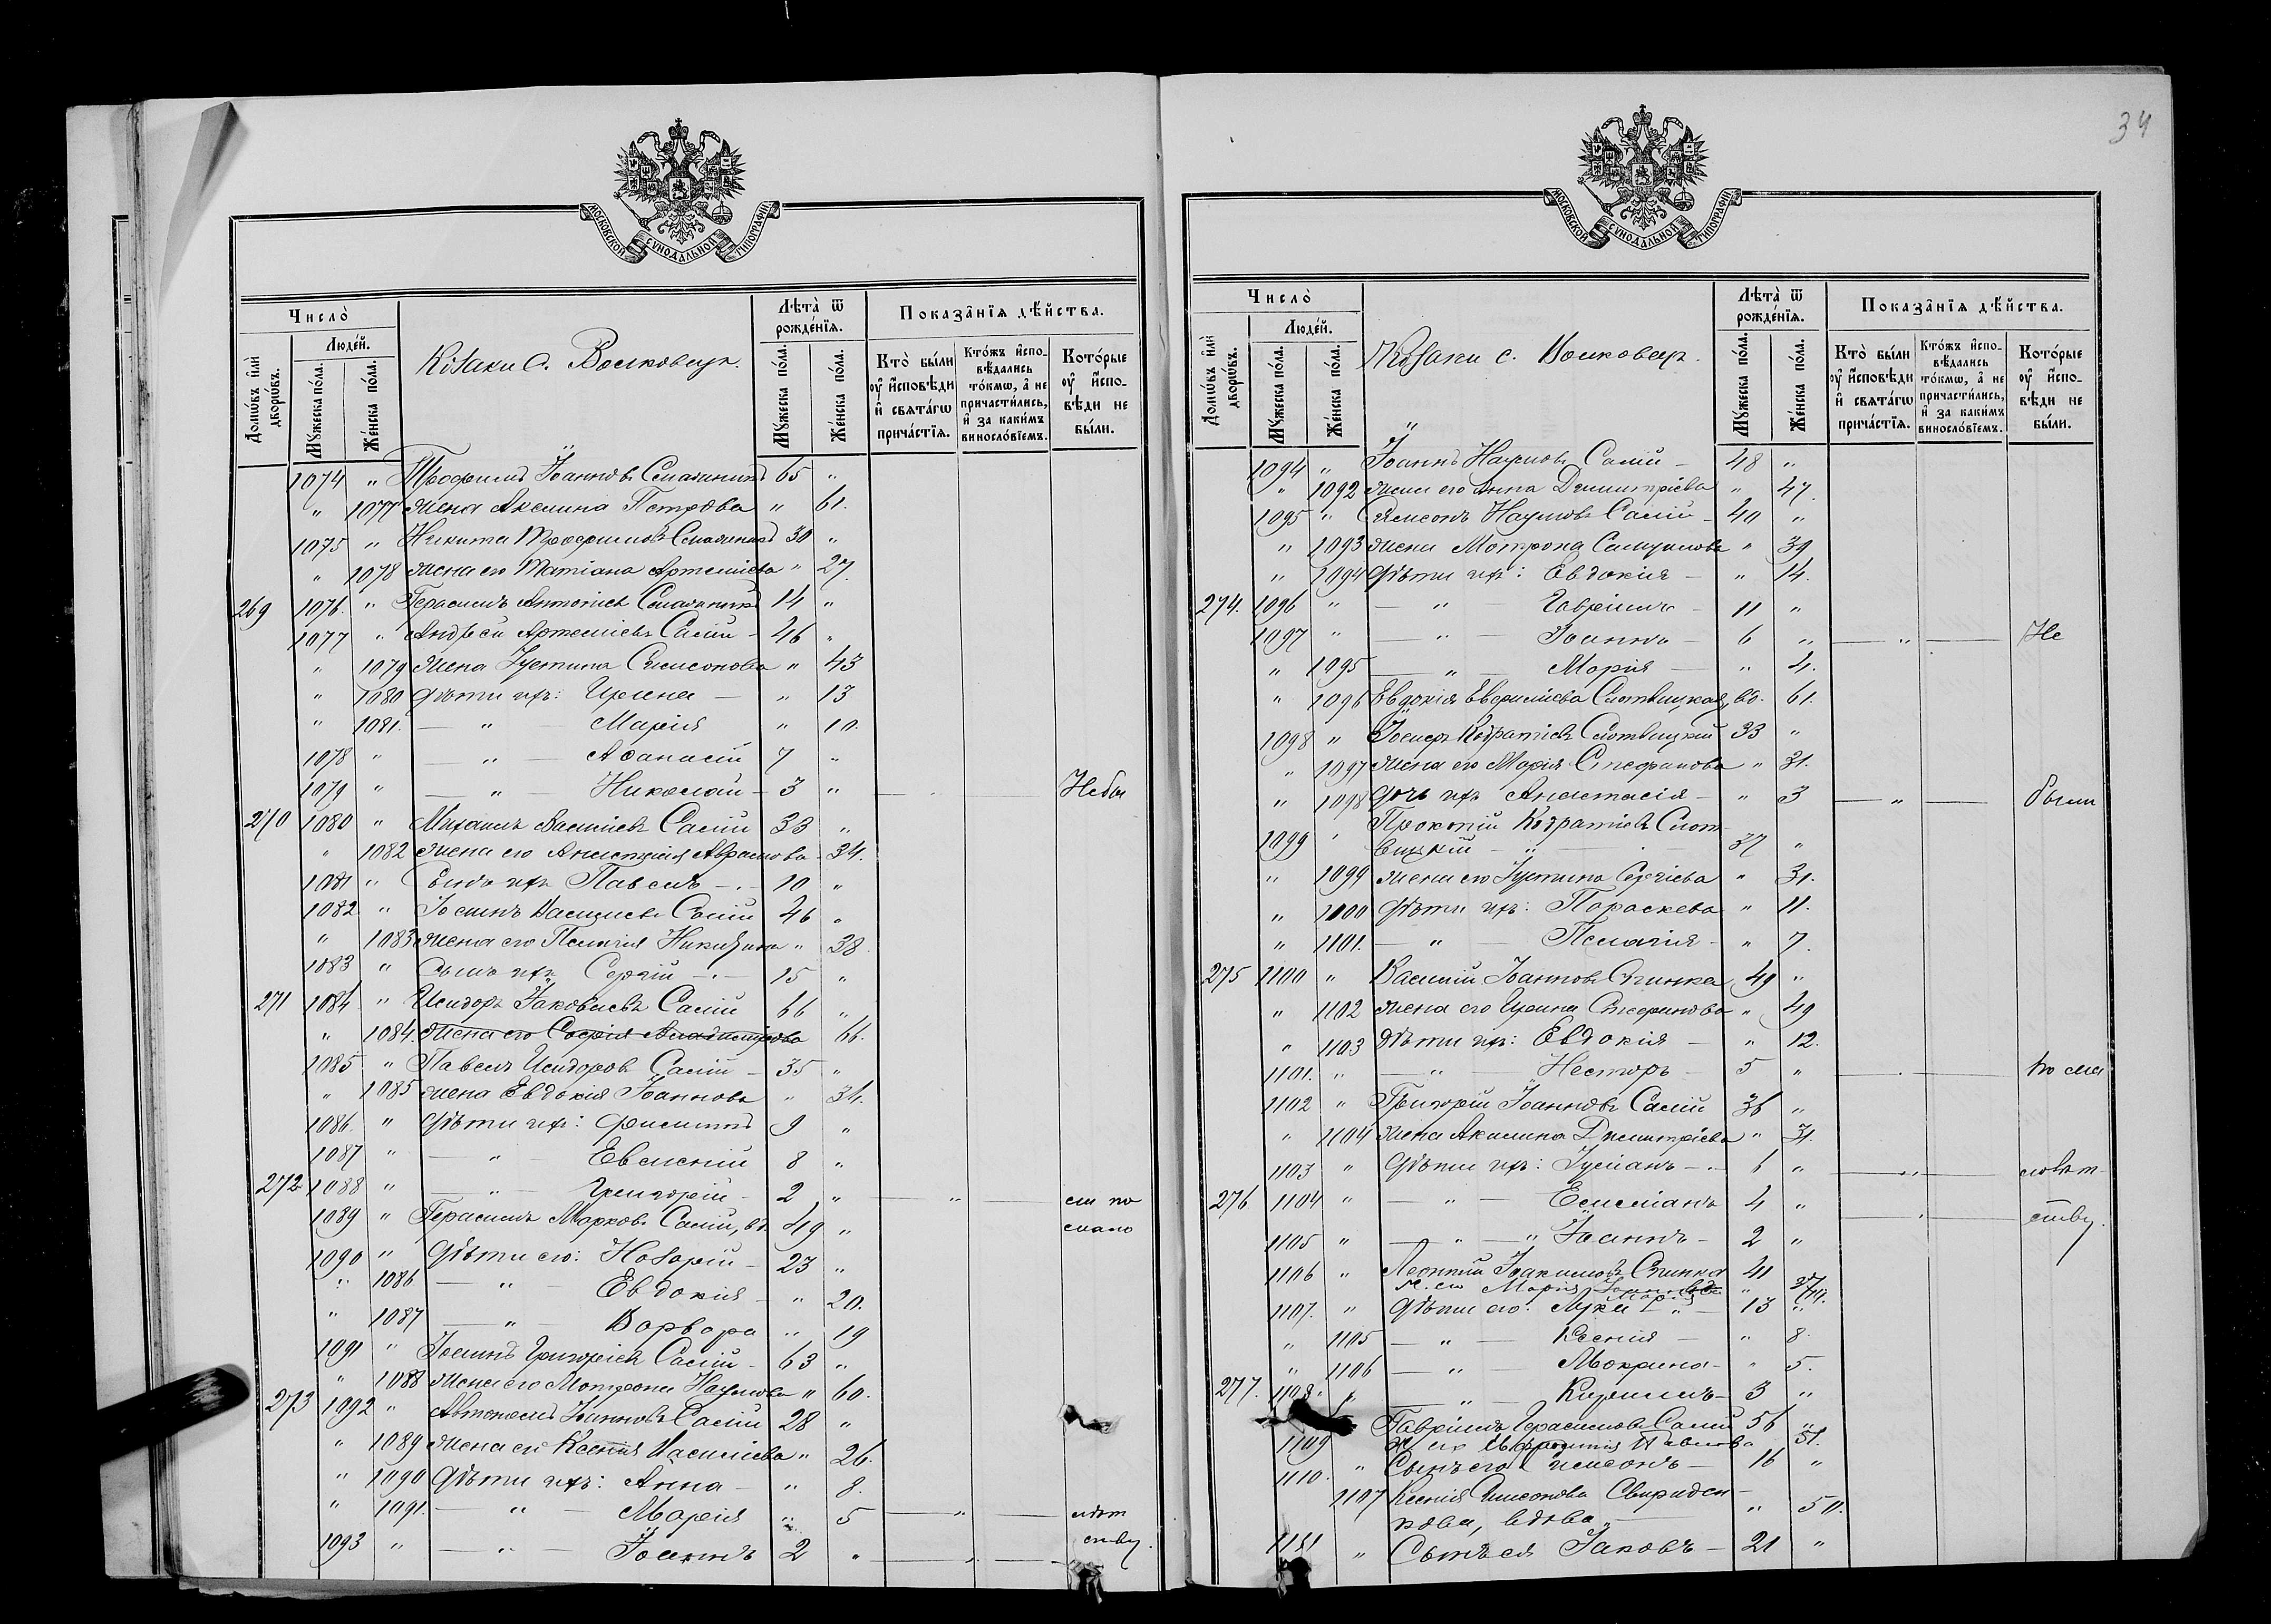 34
МОСКОВСКОЙ СУНОДАЛЬНОЙ ТИПОГРАФІИ
Число̀
Домѡвъ и҆лѝ дворѡвъ.
Люде́й.
Мꙋ́жеска по́ла.
Же́нска по́ла.
Козаки с. Волковецъ.
Лѣта̀ ѿ рожде́нїѧ.
Мꙋ́жеска по́ла.
Же́нска по́ла.
Показа̑нїѧ дѣ́йства.
Кто̀ бы́ли ᲂу҆ и҆сповѣ́ди и҆ свѧта́гѡ прича́стїѧ.
Кто́жъ и҆спо- вѣ́дались то́кмѡ, а҆ не причасти́лись, и҆ за каки́мъ винносло́вїемъ.
Кото́рые ᲂу҆ и҆спо- вѣ́ди не бы́ли.
1074 " Трофимъ Іоанновъ 65 "
" 1077 жена Акилина Петрова " 61.
1075 " Никита Трофимовъ 30 "
" 1078 жена его Татіана Артеміева " 27.
269 1076. " Герасимъ Антоніевъ 14 "
1077 " Андрей Артеміевъ Салій - 46 "
" 1079 жена Іустина Симеонова " 43
" 1080 дѣти ихъ: Ирина — " 13
" 1081. — " — Марія " 10.
1078 " — " — Аѳанасій 7 "
1079 " — " — Николай - 3 " — " — Не бы
270 1080 " Михаилъ Василіевъ Салій 33 "
" 1082 жена его Анастасія Аврамова - 34.
1081 " Сынъ ихъ Павелъ - . - 10 "
1082 " Василіевъ Салій 46 "
" 1083 жена его Пелагія " 38
1083 " Сынъ ихъ Сергій - . - 15 "
271 1084 " Исидоръ Іаковлевъ Салій 66 "
" 1084. жена его Софія 66.
1085 " Павелъ Исидоровъ Салій - 35 "
" 1085 жена Евдокія Іоаннова " 34.
1086. " дѣти ихъ: Филиппъ 9 "
1087 " — " — Евменій 8 "
272 1088 " — " — Григорій - 2 " — " — ли по
1089 " Герасимъ Марковъ Салій, вд 49 " мало
1090 " дѣти его: Назарій - 23 "
" 1086 — " — Евдокія " 20.
" 1087 — " — Варвара " 19
1091 " Григоріевъ Салій - 63 "
" 1088 жена его Мотрона Наумова " 60.
273 1092 " Автономъ Іоанновъ Салій 28 "
" 1089 жена его Ксенія Василіева " 26.
" 1090 дѣти ихъ: Анна - " 8.
" 1091. — " — Марія " 5 — " — лѣт
1093 " — " — Іоаннъ 2 " — " — ству.
МОСКОВСКОЙ СУНОДАЛЬНОЙ ТИПОГРАФІИ
Число̀
Домѡвъ и҆лѝ дворѡвъ.
Люде́й.
Мꙋ́жеска по́ла.
Же́нска по́ла.
Козаки с. Волковецъ.
Лѣта̀ ѿ рожде́нїѧ.
Мꙋ́жеска по́ла.
Же́нска по́ла.
Показа̑нїѧ дѣ́йства.
Кто̀ бы́ли ᲂу҆ и҆сповѣ́ди и҆ свѧта́гѡ прича́стїѧ.
Кто́жъ и҆спо- вѣ́дались то́кмѡ, а҆ не причасти́лись, и҆ за каки́мъ винносло́вїемъ.
Кото́рые ᲂу҆ и҆спо- вѣ́ди не бы́ли.
1094 " Іоаннъ Наумовъ Салій - 48 "
" 1092 жена его Анна Димитріева " 47.
1095 " Симеонъ Наумовъ Салій - 40 "
" 1093 жена Мотрона " 39
" 1094 дѣти ихъ: Евдокія — " 14.
274. 1096 " — " — Гавріилъ - 11 "
1097 " — " — Іоаннъ - 6 " — " — Не
" 1095 — " — Марія — " 4.
" 1096 Евдокія Евфиміева Слотвицкая, вд. 61.
1098 " Іосифъ Кодратіевъ Слотвицкій 33 "
" 1097 жена его Марія Стефанова " 31.
" 1098 дочь ихъ Анастасія - " 3 — " — были
1099 " Прокопій Кодратіевъ Слот-
вицкій — " — 37 "
" 1099 жена его Іустина Сергіева " 31.
" 1100 дѣти ихъ: Параскева " 11.
" 1101. — " — Пелагія - " 7.
275 1100 " Василій Іоанновъ Спинка 49 "
" 1102 жена его Ирина Стефанова " 49
" 1103 дѣти ихъ: Евдокія — " 12.
1101. " — " — Несторъ - 5 " — . — по ма
1102 " Григорій Іоанновъ Салій 36 "
" 1104 жена Акилина Димитріева " 31.
1103 " дѣти ихъ: Іуліанъ - . 6 " — " — ловѣт-
276 1104 " — " — Емиліанъ 4 " — " — ству.
1105 " — " — Іоаннъ - 2 "
1106 " Леонтій Іоакимовъ Спинка 41
ж. его Марія "
1107. " дѣти его: Лука - " - 13 "
" 1105 — " — Ксенія — " 8.
" 1106 — " — Мокрина - " 5.
277. 1108. " — " — Кириллъ - 3 "
1109 Гавріилъ Герасимовъ Салій 56 "
ж. его Евфросинія Павлова 51.
1110. " Сынъ его Симеонъ - 16 "
1107 Ксенія Симеонова Свириден-
кова, вдова " — " 50.
1111 " Сынъ ея Іаковъ - 21 "